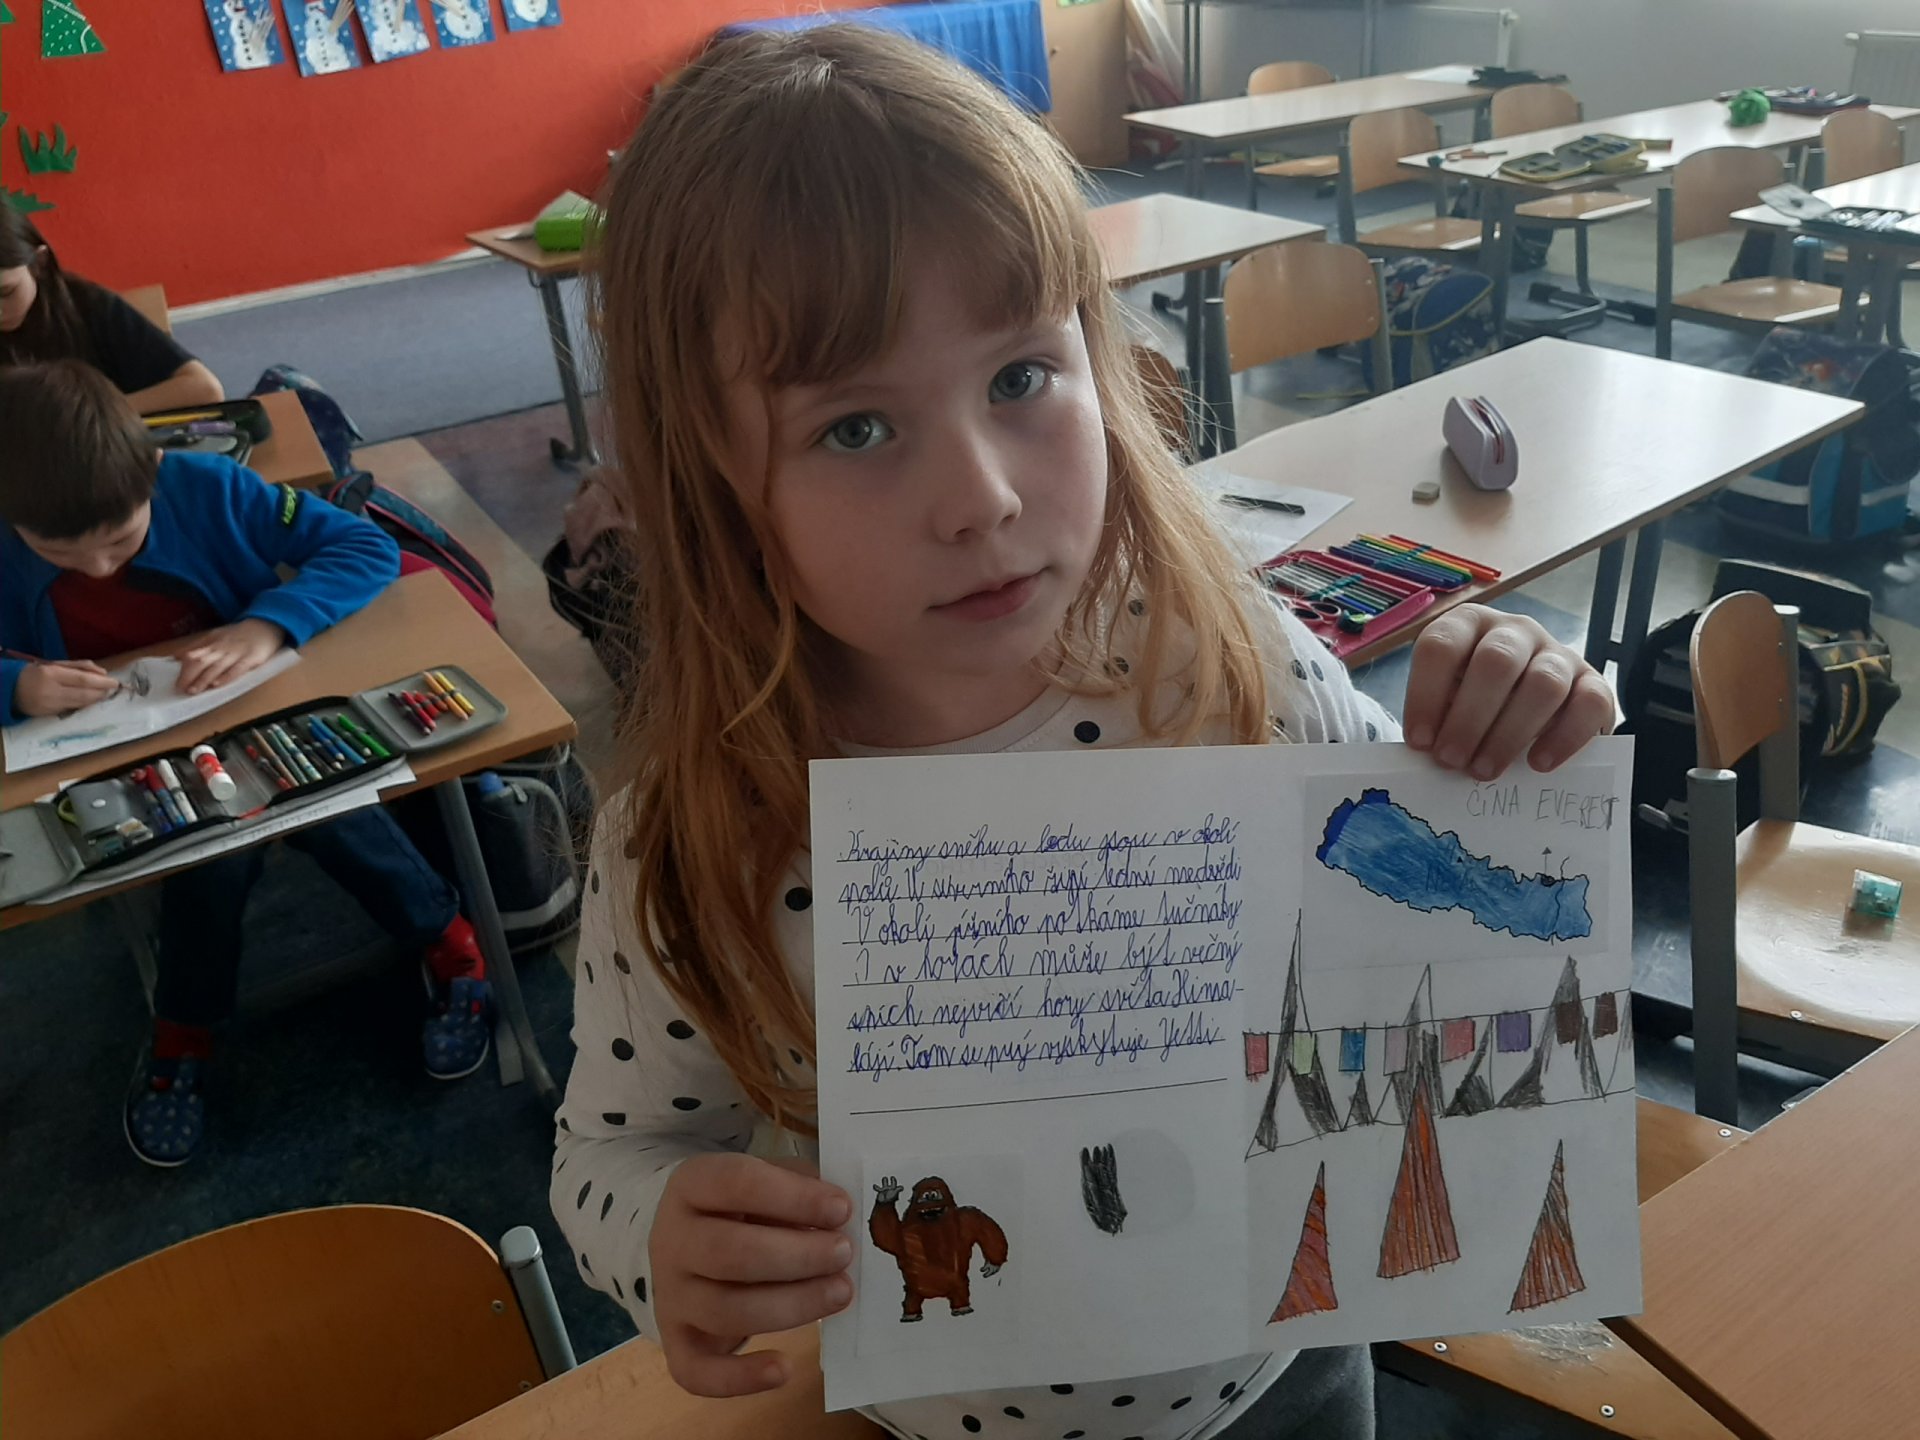 Krajiny sněhu a ledu jsou v okolí
polů. U severního žijí lední medvědi
V okolí jižního potkáme tučňáky
I v horách může být věčný
sních nejvyší hory světa Hima-
láji. Tam se prý vyskytuje Yetti
ČÍNA EVEREST